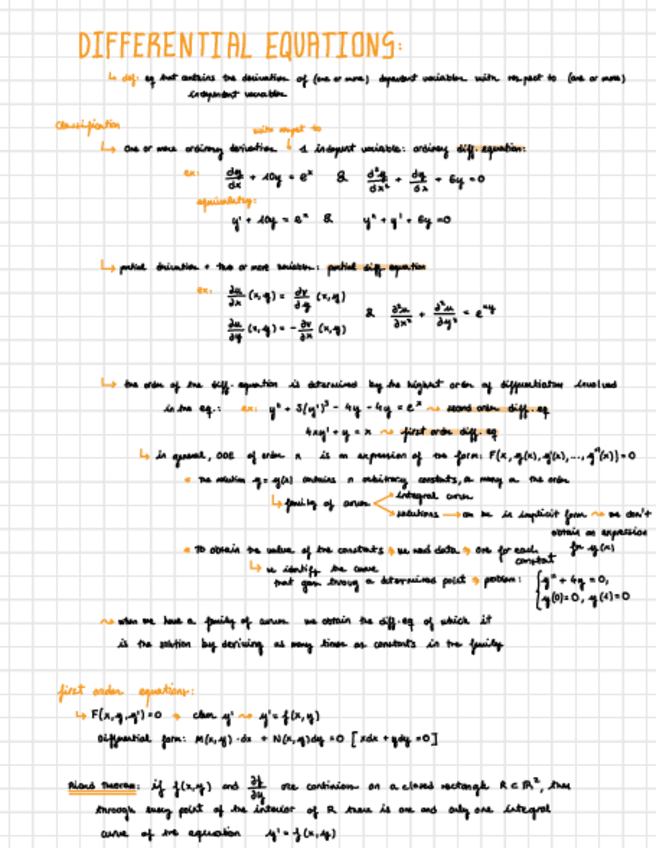 DIFFERENTIAL EQUATIONS:
↳ def: eq that contains the derivation of (one or more) dependent variables with respect to (one or more)
independent variables
Classification
with respect to
↳ one or more ordinary derivation ↓ 1 indepent variable: ordinary diff. equation:
ex: dy/dx + 10y = eˣ & d²y/dx² + dy/dx + 6y = 0
equivalently:
y' + 10y = eˣ & y'' + y' + 6y = 0
↳ partial derivation + two or more variables: partial diff. equation
ex: ∂u/∂x (x,y) = ∂v/∂y (x,y)
& ∂²u/∂x² + ∂²u/∂y² = e^xy
∂u/∂y (x,y) = -∂v/∂x (x,y)
↳ the order of the diff. equation is determined by the highest order of differentiation involved
in the eq.: ex: y'' + 3(y')³ - 4y - 4y = eˣ ⤳ second order diff. eq
4xy' + y = x ⤳ first order diff. eq
↳ in general, ODE of order n is an expression of the form: F(x, y(x), y'(x), ..., yⁿ(x)) = 0
• the solution y = y(x) contains n arbitrary constants, as many as the order
↳ family of curves
integral curve
solutions → can be in implicit form ⤳ we don't
obtain an expression
for y(x)
• To obtain the value of the constants → we need data → one for each
constant
↳ we identify the curve
that goes throug a determined point → problem: { y'' + 4y = 0,
y(0)=0, y(1)=0
⤳ when we have a family of curves we obtain the diff. eq of which it
is the solution by deriving as many times as constants in the family
first order equations:
↳ F(x,y,y')=0 → clear y' ⤳ y' = f(x,y)
Differential form: M(x,y)·dx + N(x,y)dy = 0 [xdx + ydy = 0]
Picard Theorem: if f(x,y) and ∂f/∂y are continious on a closed rectangle R ⊂ ℝ², then
through every point of the interior of R there is one and only one integral
curve of the equation y' = f(x,y)